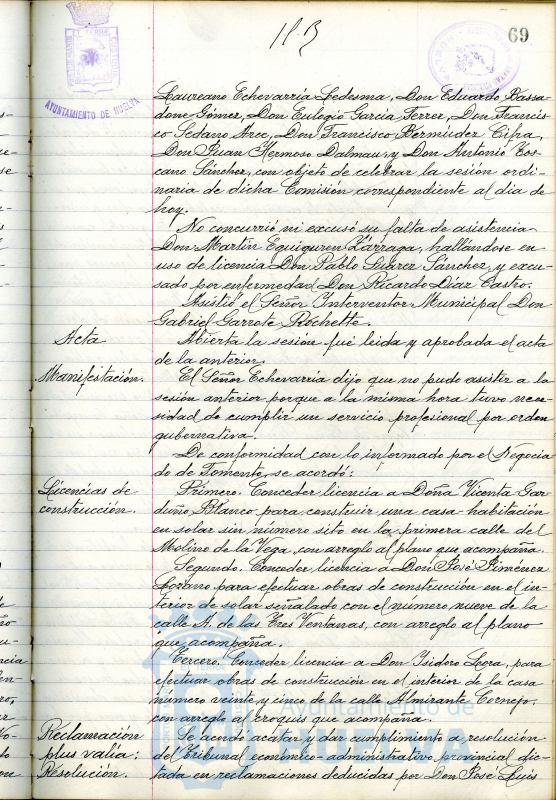 69
AYUNTAMIENTO DE HUELVA
Laureano Echevarría Ledesma, Don Eduardo Bassa-
done Gómez, Don Eulogio García Ferrer, Don Francis-
co Sedano Arce, Don Francisco Bermúdez
Don Juan Hermoso Dalmau, y Don Antonio Tos-
cano Sánchez, con objeto de celebrar la sesión ordi-
naria de dicha Comisión correspondiente al día de
hoy.
No concurrió ni excusó su falta de asistencia
Don Martín Eguiguren Zárraga, hallándose en
uso de licencia Don Pablo Suárez Sánchez, y excu-
sado por enfermedad Don Ricardo Díaz Castro.
Asistió el Señor Interventor Municipal Don
Gabriel Garrote Rochette.
Acta
Abierta la sesión fué leída y aprobada el acta
de la anterior.
Manifestación.
El Señor Echevarría dijo que no pudo asistir a la
sesión anterior porque a la misma hora tuvo nece-
sidad de cumplir un servicio profesional por orden
gubernativa.
De conformidad con lo informado por el Negocia
do de Fomento, se acordó:
Licencias de
construcción.
Primero. Conceder licencia a Doña Vicenta Gar
duño Blanco para construir una casa-habitación
en solar sin número sito en la primera calle del
Molino de la Vega, con arreglo al plano que acompaña.
Segundo. Conceder licencia a Don José Jiménez
Lozano para efectuar obras de construcción en el in-
terior de solar señalado con el número nueve de la
calle A. de las Tres Ventanas, con arreglo al plano
que acompaña.
Tercero. Conceder licencia a Don Isidoro Lora, para
efectuar obras de construcción en el interior de la casa
número veinte y cinco de la calle Almirante Cornejo,
con arreglo al croquis que acompaña.
Reclamación
plus valía:
Resolución.
Se acordó acatar y dar cumplimiento a resolución
del Tribunal económico-administrativo provincial dic-
tada en reclamaciones deducidas por Don José Luis
Ayuntamiento de
HUELVA